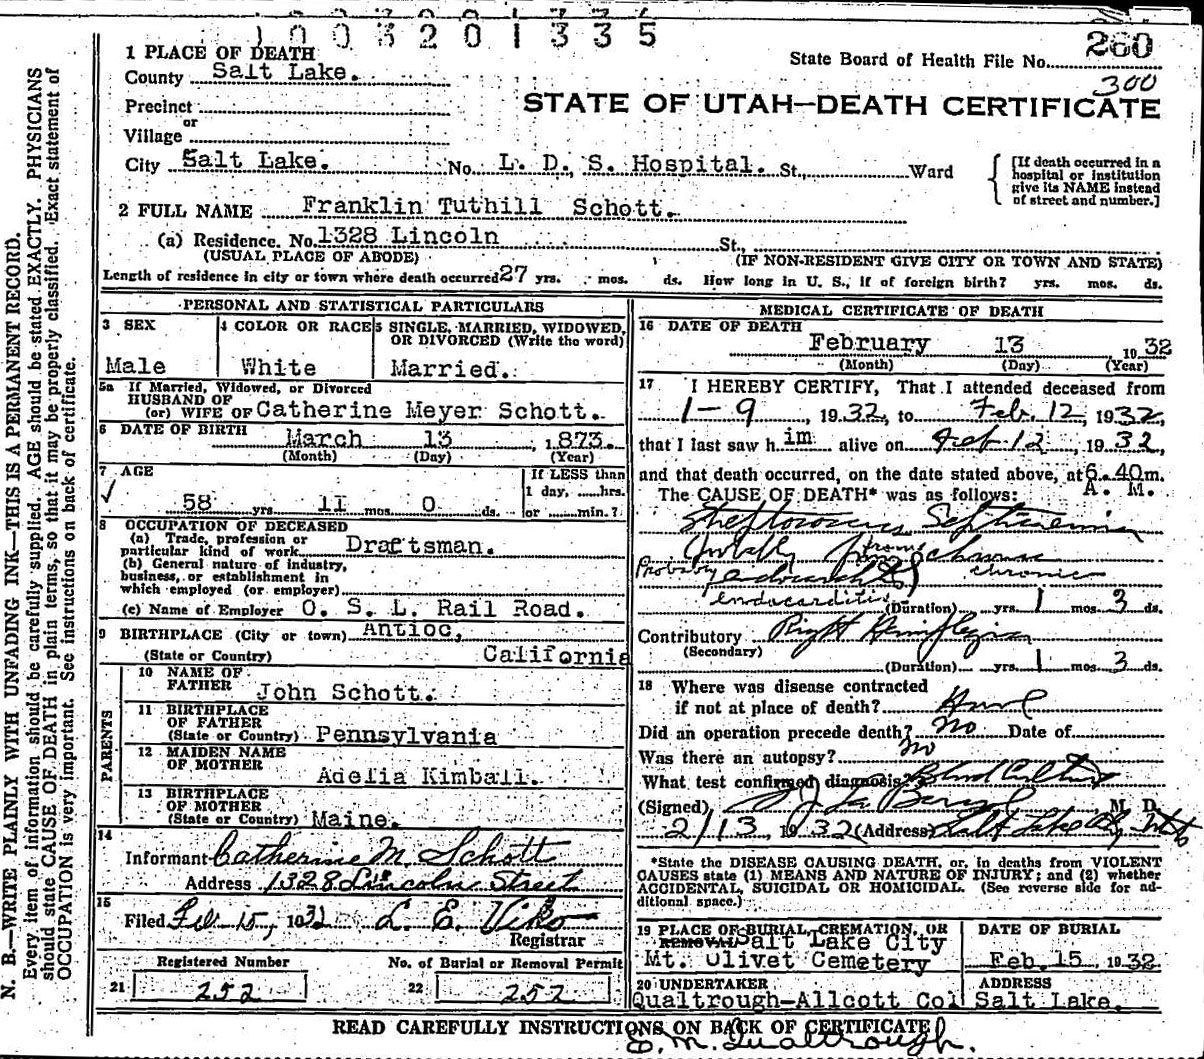 1003201335
State Board of Health File No. 260
300
1 PLACE OF DEATH
County Salt Lake.
STATE OF UTAH—DEATH CERTIFICATE
Precinct
or
Village
City Salt Lake. No. L. D. S. Hospital. St., Ward
[If death occurred in a hospital or institution give its NAME instead of street and number.]
2 FULL NAME Franklin Tuthill Schott.
(a) Residence. No. 1328 Lincoln St.,
(USUAL PLACE OF ABODE) (IF NON-RESIDENT GIVE CITY OR TOWN AND STATE)
Length of residence in city or town where death occurred 27 yrs. mos. ds. How long in U. S., if of foreign birth? yrs. mos. ds.
PERSONAL AND STATISTICAL PARTICULARS
3 SEX
Male
4 COLOR OR RACE
White
5 SINGLE, MARRIED, WIDOWED,
OR DIVORCED (Write the word)
Married.
5a If Married, Widowed, or Divorced
HUSBAND OF
(or) WIFE OF Catherine Meyer Schott.
6 DATE OF BIRTH
March 13 1873.
(Month) (Day) (Year)
7 AGE
58 yrs. 11 mos. 0 ds.
If LESS than
1 day, hrs.
or min.?
8 OCCUPATION OF DECEASED
(a) Trade, profession or
particular kind of work Draftsman.
(b) General nature of industry,
business, or establishment in
which employed (or employer)
(c) Name of Employer O. S. L. Rail Road.
9 BIRTHPLACE (City or town) Antioc,
(State or Country) California
PARENTS
10 NAME OF
FATHER John Schott.
11 BIRTHPLACE
OF FATHER
(State or Country) Pennsylvania
12 MAIDEN NAME
OF MOTHER Adelia Kimball.
13 BIRTHPLACE
OF MOTHER
(State or Country) Maine.
14
Informant Catherine M. Schott
Address 1328 Lincoln Street
15
Filed Feb 15, 1932 L. E. Viko
Registrar
Registered Number No. of Burial or Removal Permit
21 252 22 252
MEDICAL CERTIFICATE OF DEATH
16 DATE OF DEATH
February 13 1932
(Month) (Day) (Year)
17 I HEREBY CERTIFY, That I attended deceased from
1-9 1932, to Feb. 12, 1932,
that I last saw h im alive on Feb 12, 1932,
and that death occurred, on the date stated above, at 6.40m.
The CAUSE OF DEATH* was as follows: A. M.
Streptococcus Septicemia
Probably from chronic
endocarditis
(Duration) yrs. 1 mos. 3 ds.
Contributory Right Hemiplegia
(Secondary)
(Duration) yrs. 1 mos. 3 ds.
18 Where was disease contracted
if not at place of death?
Did an operation precede death? No Date of
Was there an autopsy? no
What test confirmed diagnosis? Blood Culture
(Signed) M. D.
2/13, 1932 (Address) Salt Lake City, Utah
*State the DISEASE CAUSING DEATH, or, in deaths from VIOLENT
CAUSES state (1) MEANS AND NATURE OF INJURY; and (2) whether
ACCIDENTAL, SUICIDAL OR HOMICIDAL. (See reverse side for ad-
ditional space.)
19 PLACE OF BURIAL, CREMATION, OR
REMOVAL Salt Lake City
Mt. Olivet Cemetery
DATE OF BURIAL
Feb. 15, 1932
20 UNDERTAKER
Qualtrough-Allcott Co.
ADDRESS
Salt Lake.
READ CAREFULLY INSTRUCTIONS ON BACK OF CERTIFICATE
E. M. Qualtrough.
N. B.—WRITE PLAINLY WITH UNFADING INK—THIS IS A PERMANENT RECORD.
Every item of information should be carefully supplied. AGE should be stated EXACTLY. PHYSICIANS
should state CAUSE OF DEATH in plain terms, so that it may be properly classified. Exact statement of
OCCUPATION is very important. See instructions on back of certificate.